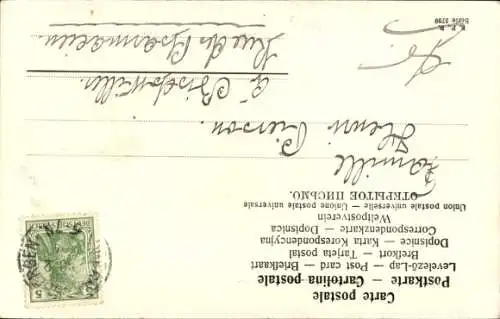 Carte postale
Postkarte – Cartolina postale
Levelező-Lap – Post card – Briefkaart
Brefkort – Tarjeta postal
Dopisnice – Karta Korespondencyjna
Correspondenzkarte – Dopisnica
Weltpostverein
Union postale universelle – Unione postale universale
ОТКРЫТОЕ ПИСЬМО.
Famille
Henri Pierson.
à Bischwiller
Rue des
Serie
5